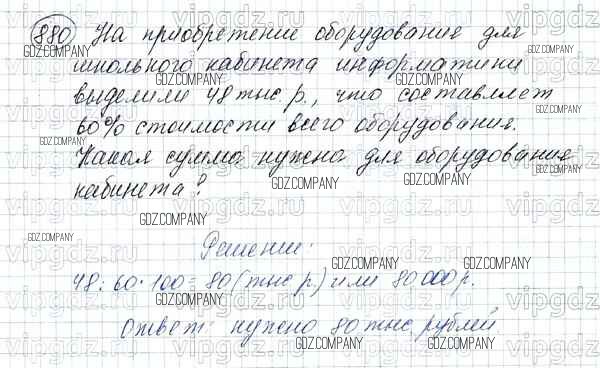 880 На приобретение оборудования для
школьного кабинета информатики
выделили 48 тыс р., что составляет
60% стоимости всего оборудования.
Какая сумма нужна для оборудования
кабинета?
Решение:
48 : 60 · 100 = 80 (тыс р.) или 80 000 р.
Ответ: нужно 80 тыс. рублей
vipgdz.ru
GDZ.COMPANY